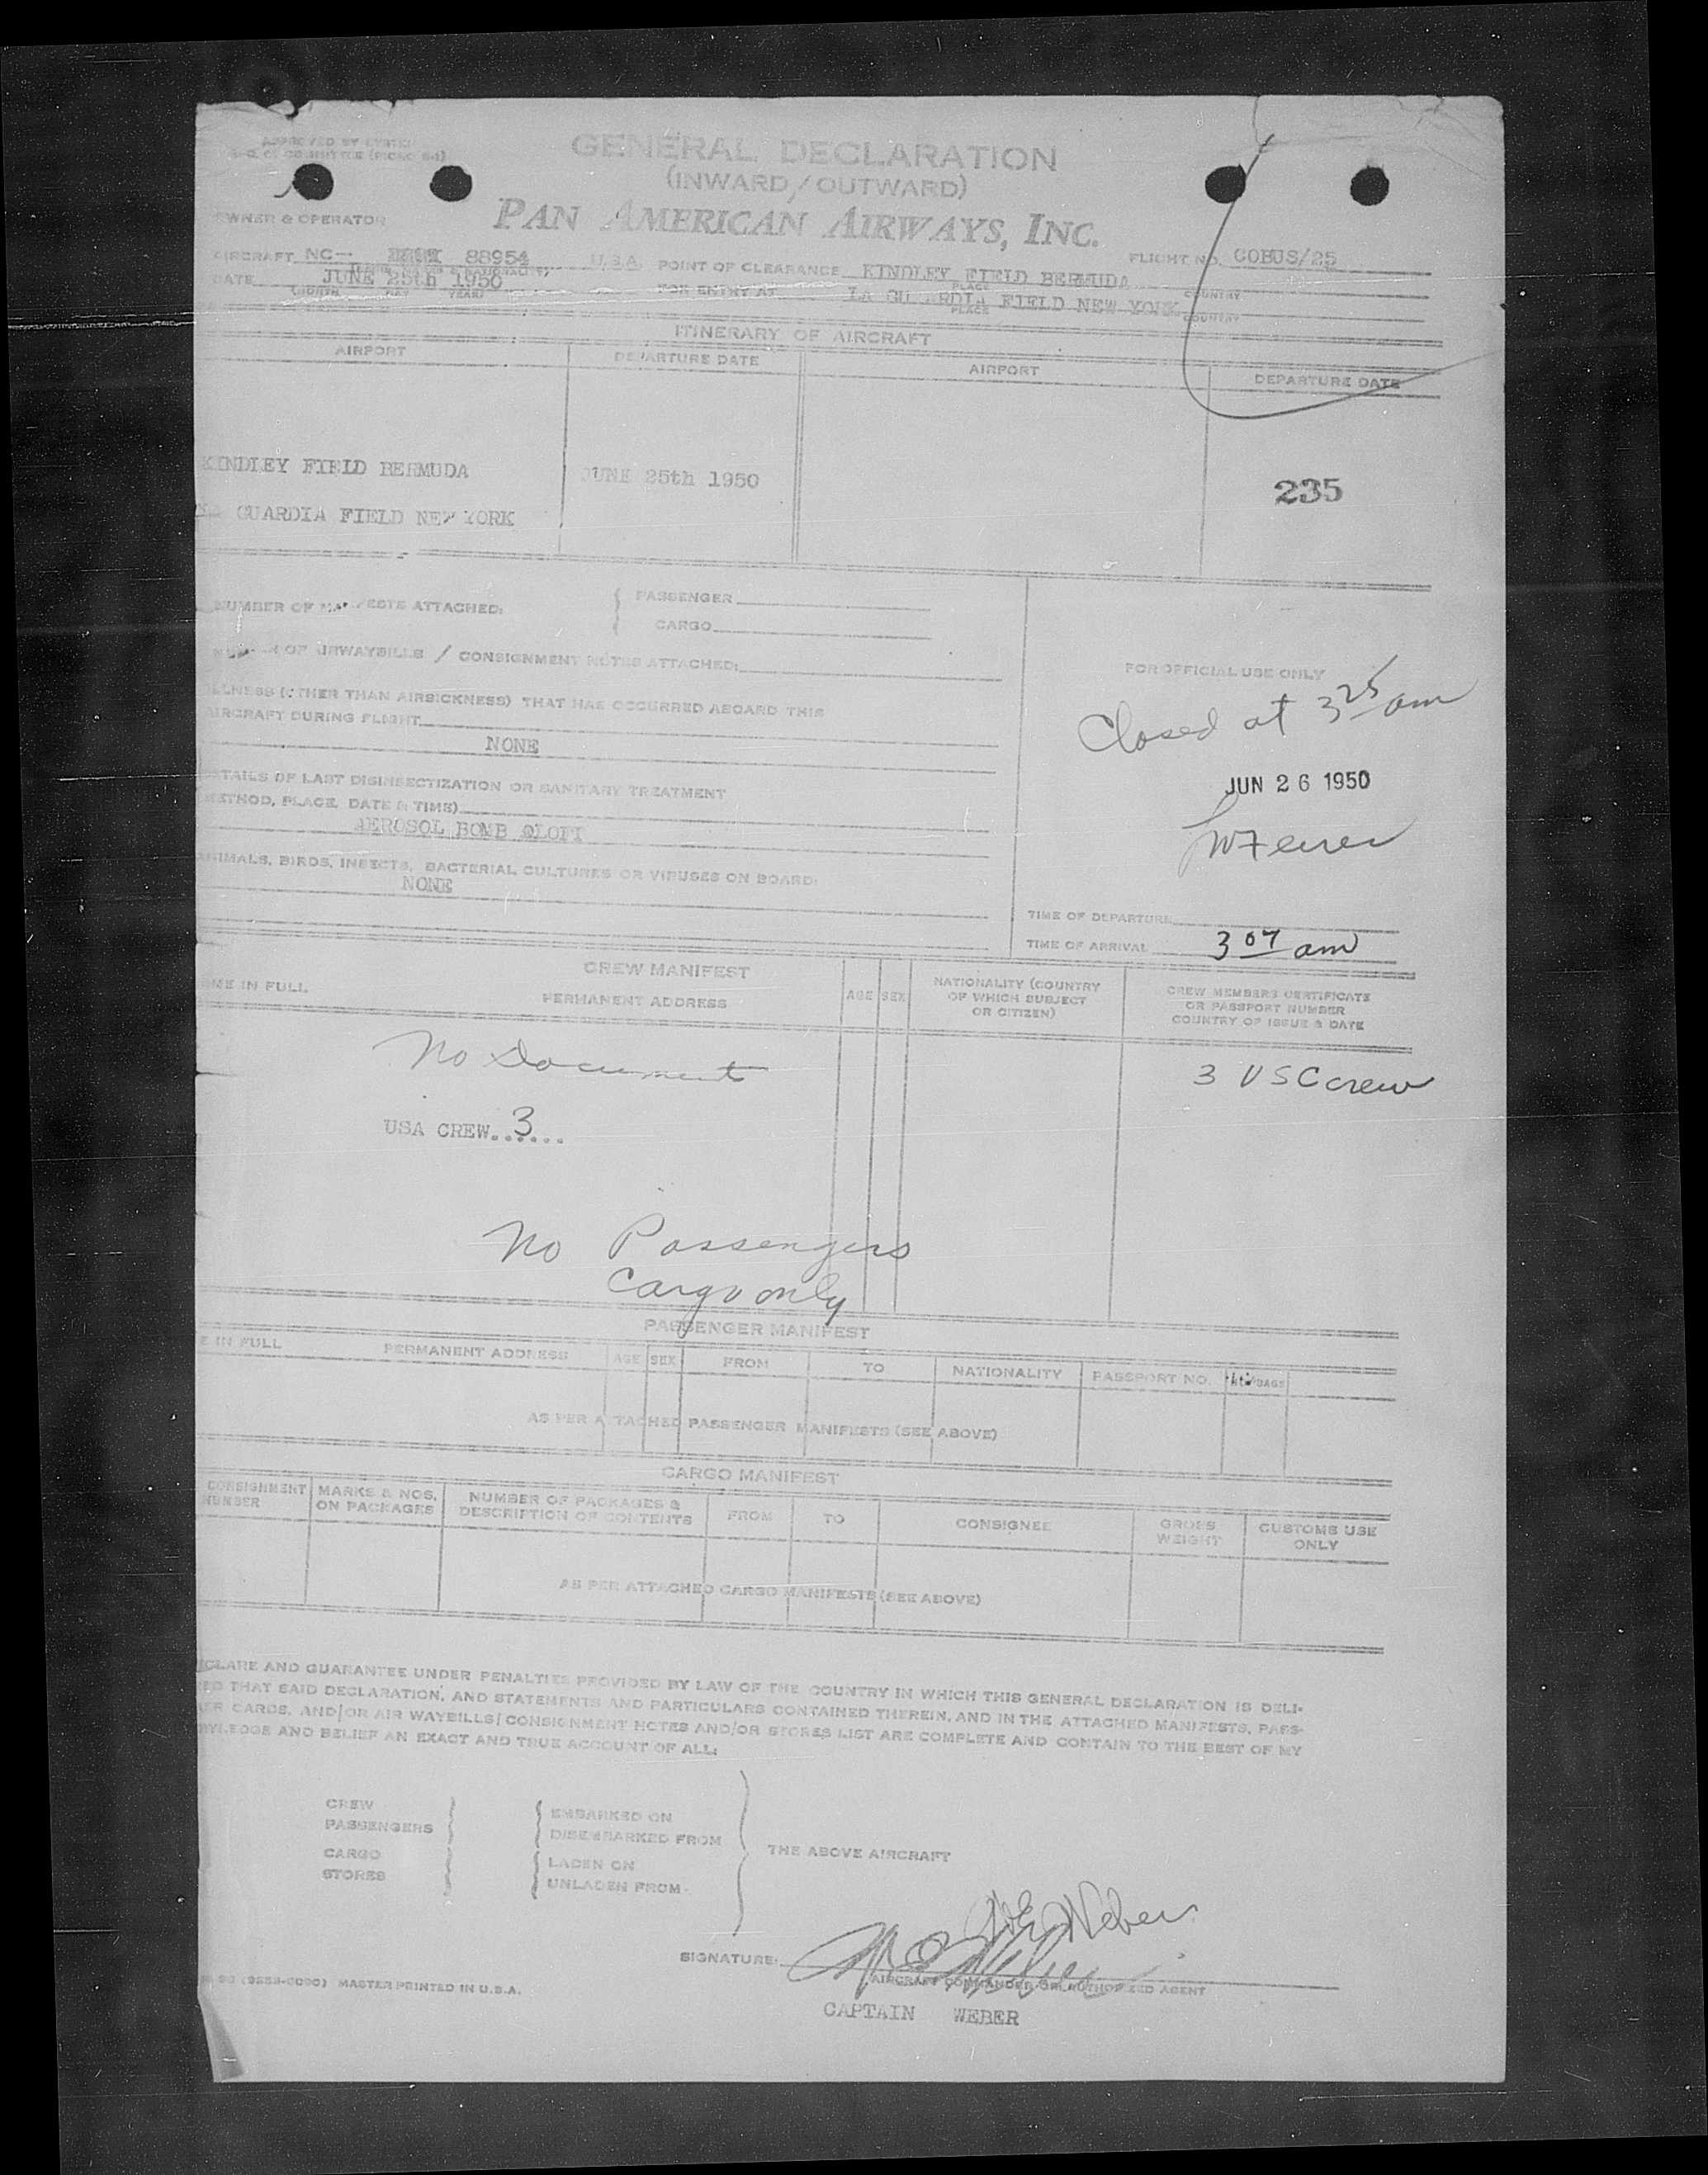 APPROVED BY
GENERAL DECLARATION
(INWARD/OUTWARD)
OWNER & OPERATOR
PAN AMERICAN AIRWAYS, INC.
AIRCRAFT NC— 88954 U.S.A. POINT OF CLEARANCE KINDLEY FIELD BERMUDA FLIGHT NO. COBUS/25
PLACE COUNTRY
DATE JUNE 25th 1950 FOR ENTRY AT LA GUARDIA FIELD NEW YORK
(MONTH DAY YEAR) PLACE COUNTRY
ITINERARY OF AIRCRAFT
AIRPORT DEPARTURE DATE AIRPORT DEPARTURE DATE
KINDLEY FIELD BERMUDA JUNE 25th 1950 235
LA GUARDIA FIELD NEW YORK
NUMBER OF MANIFESTS ATTACHED: { PASSENGER
CARGO
NUMBER OF AIRWAYBILLS / CONSIGNMENT NOTES ATTACHED:
FOR OFFICIAL USE ONLY
ILLNESS (OTHER THAN AIRSICKNESS) THAT HAS OCCURRED ABOARD THIS
AIRCRAFT DURING FLIGHT
Closed at 3 25 am
NONE
DETAILS OF LAST DISINSECTIZATION OR SANITARY TREATMENT
JUN 26 1950
(METHOD, PLACE, DATE & TIME)
AEROSOL BOMB
ANIMALS, BIRDS, INSECTS, BACTERIAL CULTURES OR VIRUSES ON BOARD:
NONE
TIME OF DEPARTURE
TIME OF ARRIVAL 3 07 am
CREW MANIFEST
NAME IN FULL PERMANENT ADDRESS AGE SEX NATIONALITY (COUNTRY OF WHICH SUBJECT OR CITIZEN) CREW MEMBERS CERTIFICATE OR PASSPORT NUMBER COUNTRY OF ISSUE & DATE
No Document 3 USC crew
USA CREW..3....
No Passengers
Cargo only
PASSENGER MANIFEST
E IN FULL PERMANENT ADDRESS AGE SEX FROM TO NATIONALITY PASSPORT NO.
AS PER ATTACHED PASSENGER MANIFESTS (SEE ABOVE)
CARGO MANIFEST
CONSIGNMENT NUMBER MARKS & NOS. ON PACKAGES NUMBER OF PACKAGES & DESCRIPTION OF CONTENTS FROM TO CONSIGNEE GROSS WEIGHT CUSTOMS USE ONLY
AS PER ATTACHED CARGO MANIFESTS (SEE ABOVE)
CLARE AND GUARANTEE UNDER PENALTIES PROVIDED BY LAW OF THE COUNTRY IN WHICH THIS GENERAL DECLARATION IS DELI-
ED THAT SAID DECLARATION, AND STATEMENTS AND PARTICULARS CONTAINED THEREIN, AND IN THE ATTACHED MANIFESTS, PASS-
ER CARDS, AND/OR AIR WAYBILLS/CONSIGNMENT NOTES AND/OR STORES LIST ARE COMPLETE AND CONTAIN TO THE BEST OF MY
WLEDGE AND BELIEF AN EXACT AND TRUE ACCOUNT OF ALL:
CREW
PASSENGERS
EMBARKED ON
DISEMBARKED FROM
CARGO
STORES
LADEN ON
UNLADEN FROM
THE ABOVE AIRCRAFT
Weber
SIGNATURE:
AIRCRAFT COMMANDER OR AUTHORIZED AGENT
MASTER PRINTED IN U.S.A.
CAPTAIN WEBER